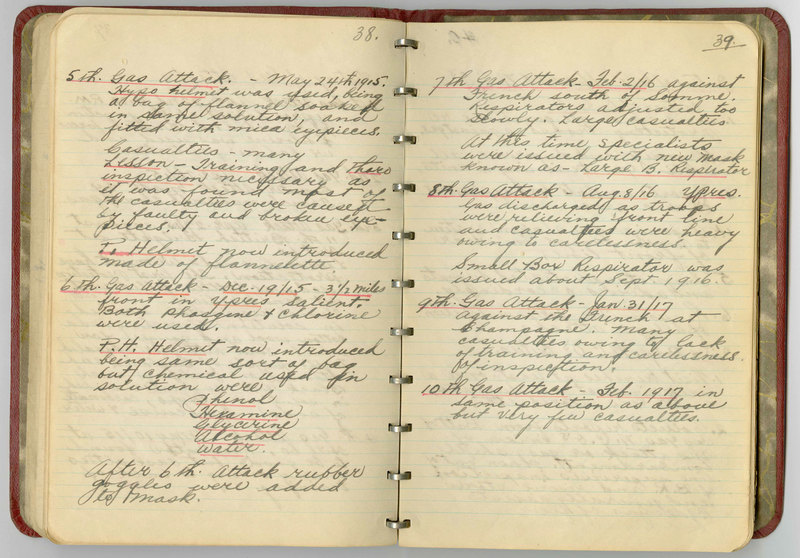 38.
5th. Gas Attack. - May 24th 1915.
Hypo helmet was used, being
a bag of flannel soaked
in same solution, and
fitted with mica eyepieces.
Casualties - many
Lesson - Training and thoro
inspection necessary as
it was found most of
the casualties were caused
by faulty and broken eye-
pieces.
P. Helmet now introduced
made of flannelette.
6th. Gas Attack - Dec. 19/15 - 3½ miles
front in Ypres Salient.
Both Phosgene & Chlorine
were used.
P.H. Helmet now introduced
being same sort of bag
but chemical used in
solution were
Phenol
Hexamine
Glycerine
Alcohol
Water.
After 6th. Attack rubber
goggles were added
to mask.
39.
7th Gas Attack - Feb. 2/16 against
French south of Somme.
Respirators adjusted too
slowly. Large casualties
At this time, specialists
were issued with new mask
known as - Large B. Respirator
8th. Gas Attack - Aug. 8/16 Ypres.
Gas discharged as troops
were relieving front line
and casualties were heavy
owing to carelessness.
Small Box Respirator was
issued about Sept 1916.
9th Gas Attack - Jan 31/17
against the French at
Champagne. Many
casualties owing to lack
of training and carelessness.
of inspection.
10th Gas Attack - Feb. 1917 in
same position as above
but very few casualties.